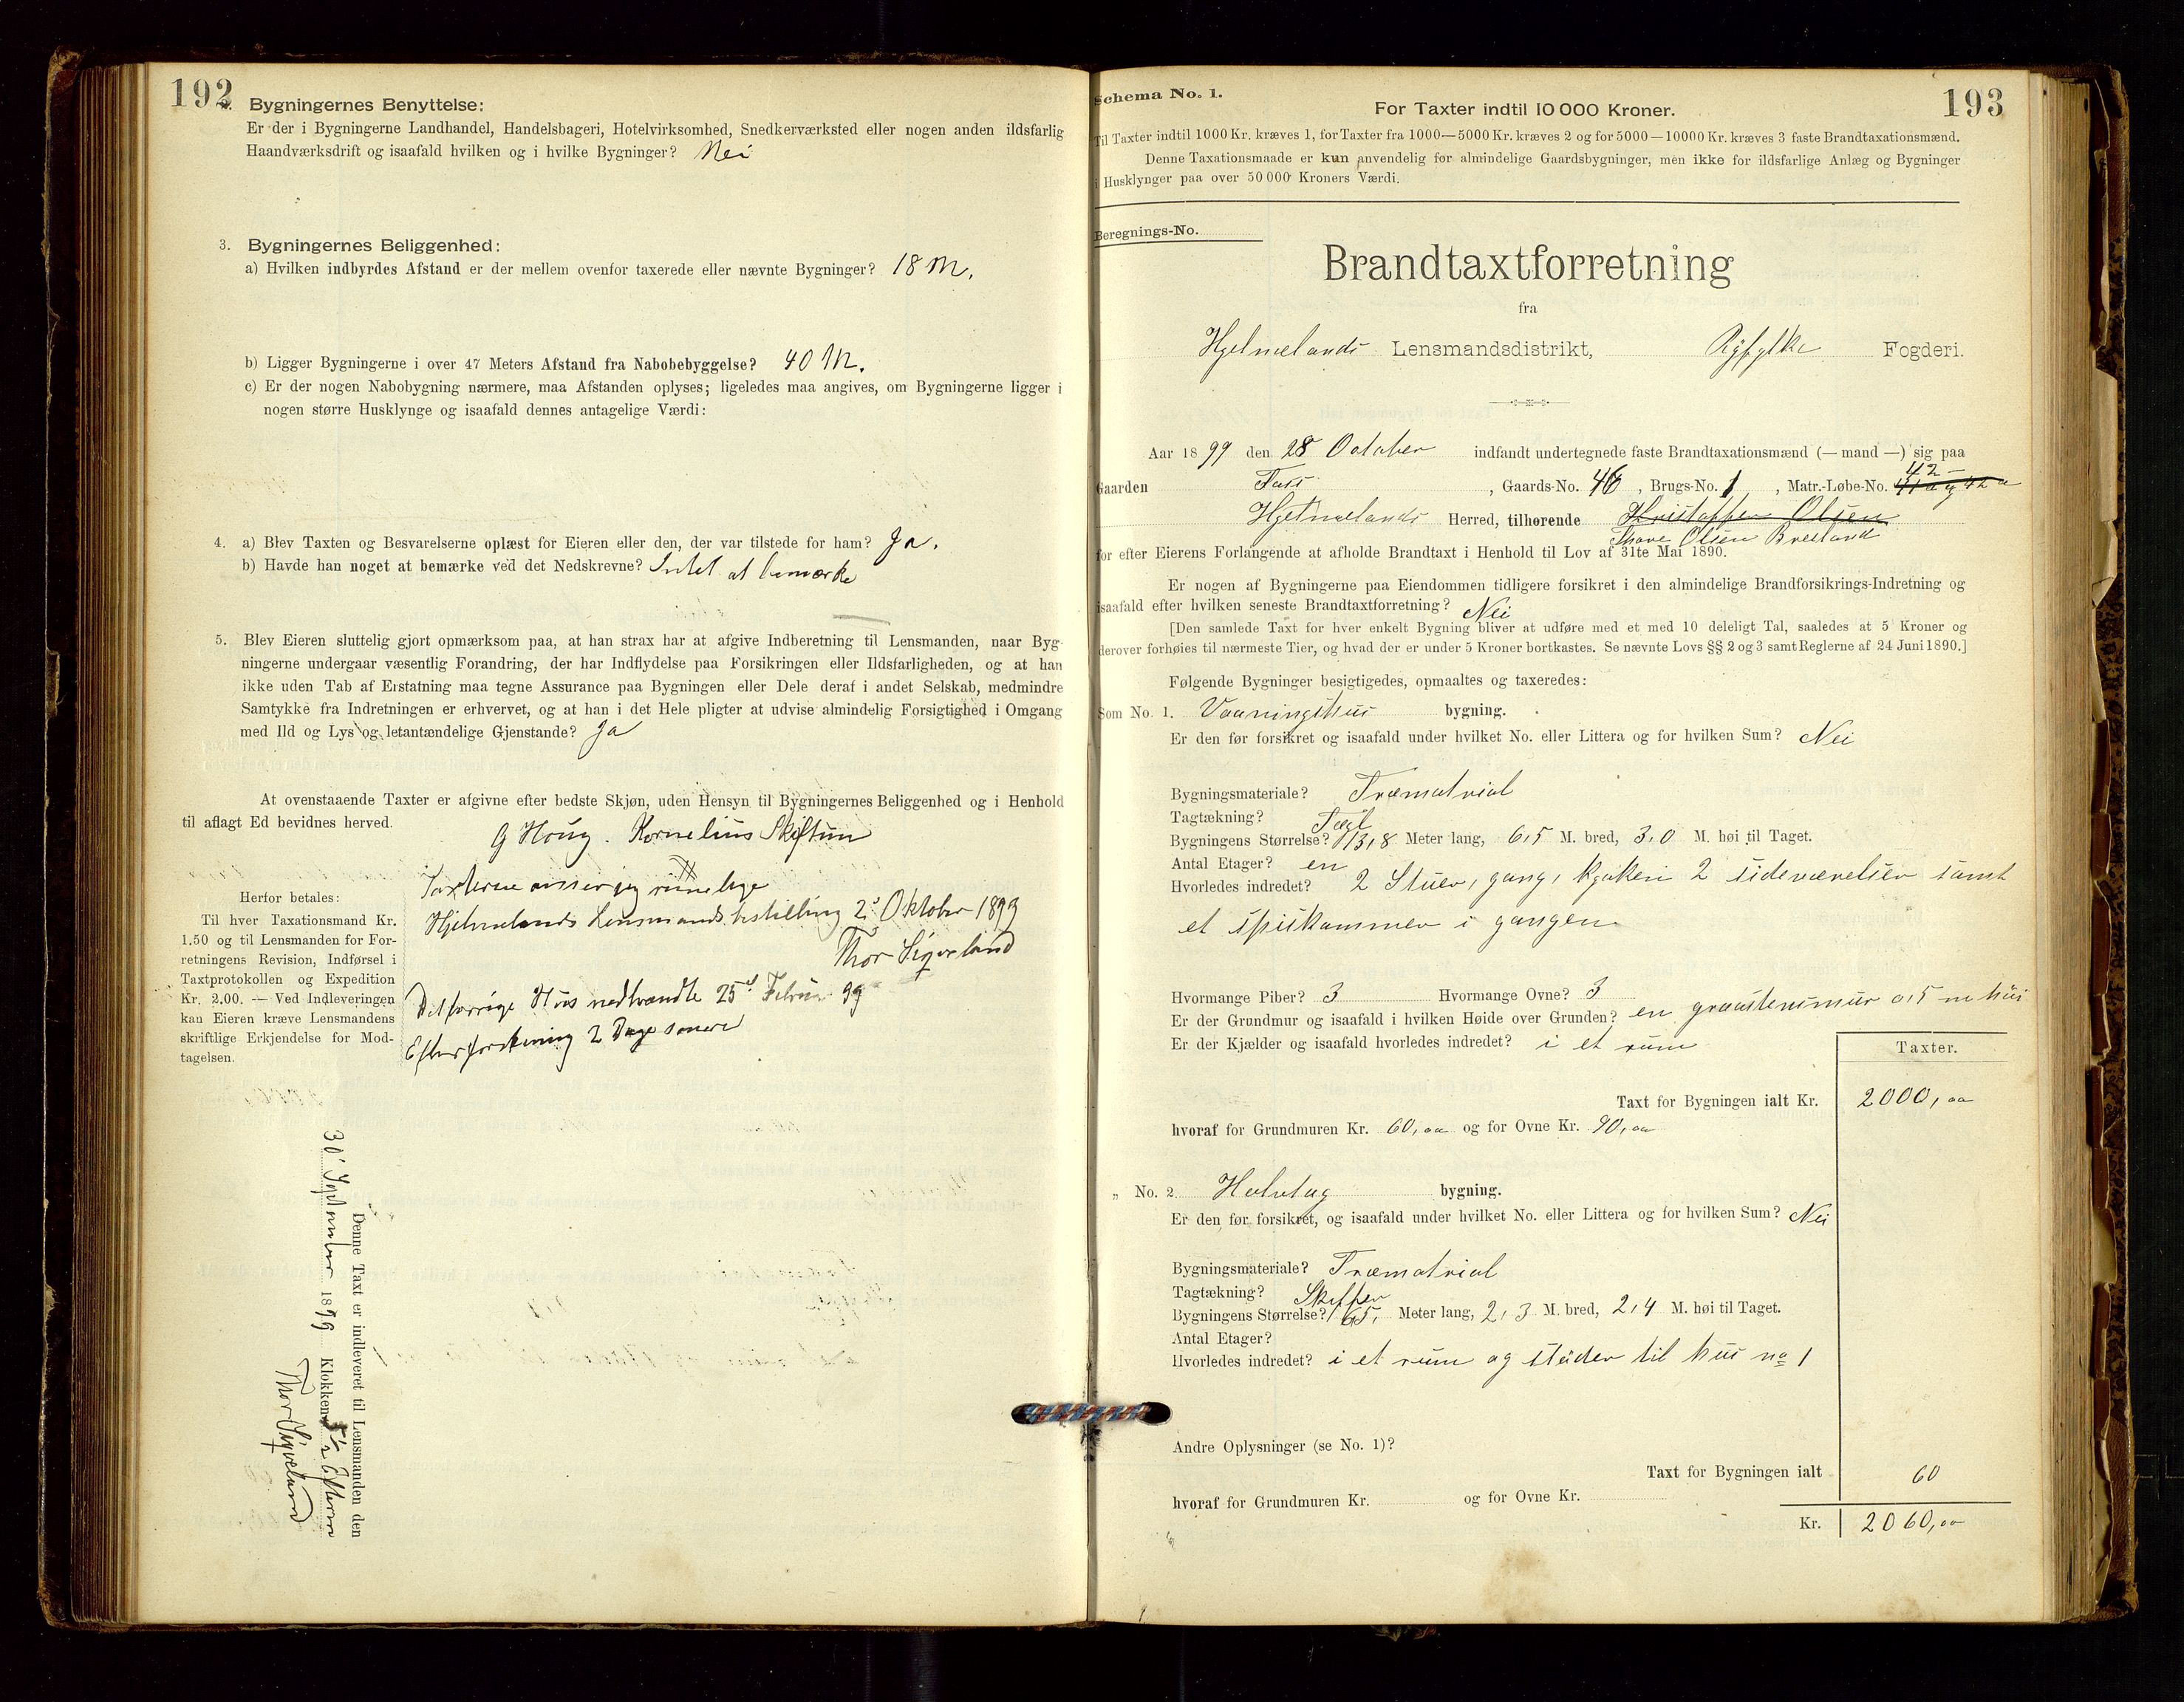 192
2. Bygningernes Benyttelse:
Er der i Bygningerne Landhandel, Handelsbageri, Hotelvirksomhed, Snedkerværksted eller nogen anden ildsfarlig
Haandværksdrift og isaafald hvilken og i hvilke Bygninger? Nei
3. Bygningernes Beliggenhed:
a) Hvilken indbyrdes Afstand er der mellem ovenfor taxerede eller nævnte Bygninger? 18 M.
b) Ligger Bygningerne i over 47 Meters Afstand fra Nabobebyggelse? 40 M.
c) Er der nogen Nabobygning nærmere, maa Afstanden oplyses; ligeledes maa angives, om Bygningerne ligger i
nogen større Husklynge og isaafald dennes antagelige Værdi:
4. a) Blev Taxten og Besvarelserne oplæst for Eieren eller den, der var tilstede for ham? Ja.
b) Havde han noget at bemærke ved det Nedskrevne? Intet at bemærke
5. Blev Eieren sluttelig gjort opmærksom paa, at han strax har at afgive Indberetning til Lensmanden, naar Byg-
ningerne undergaar væsentlig Forandring, der har Indflydelse paa Forsikringen eller Ildsfarligheden, og at han
ikke uden Tab af Erstatning maa tegne Assurance paa Bygningen eller Dele deraf i andet Selskab, medmindre
Samtykke fra Indretningen er erhvervet, og at han i det Hele pligter at udvise almindelig Forsigtighed i Omgang
med Ild og Lys og letantændelige Gjenstande? Ja
At ovenstaaende Taxter er afgivne efter bedste Skjøn, uden Hensyn til Bygningernes Beliggenhed og i Henhold
til aflagt Ed bevidnes herved.
G Houg. Kornelius Skiftun
Taxterne anser jeg rimelige
Hjelmelands Lensmandsbestilling 2' Oktober 1899
Thor Sigveland
Det forrige Hus nedbrændte 25de Februar 99
Efterforskning 2 Dage senere
Herfor betales:
Til hver Taxationsmand Kr.
1.50 og til Lensmanden for For-
retningens Revision, Indførsel i
Taxtprotokollen og Expedition
Kr. 2.00. — Ved Indleveringen
kan Eieren kræve Lensmandens
skriftlige Erkjendelse for Mod-
tagelsen.
Denne Taxt er indleveret til Lensmanden den
30' September 1899 Klokken 5 1/2 Efterm
Thor Sigveland
193
Schema No. 1.
For Taxter indtil 10 000 Kroner.
Til Taxter indtil 1000 Kr. kræves 1, for Taxter fra 1000—5000 Kr. kræves 2 og for 5000—10000 Kr. kræves 3 faste Brandtaxationsmænd.
Denne Taxationsmaade er kun anvendelig for almindelige Gaardsbygninger, men ikke for ildsfarlige Anlæg og Bygninger
i Husklynger paa over 50 000 Kroners Værdi.
Beregnings-No.
Brandtaxtforretning
fra
Hjelmelands Lensmandsdistrikt, Ryfylke Fogderi.
Aar 1899 den 28 October indfandt undertegnede faste Brandtaxationsmænd (— mand —) sig paa
42
Gaarden , Gaards-No. 46, Brugs-No. 1, Matr.-Løbe-No.
Hjelmelands Herred, tilhørende Kristoffer Olsen
Olsen
for efter Eierens Forlangende at afholde Brandtaxt i Henhold til Lov af 31te Mai 1890.
Er nogen af Bygningerne paa Eiendommen tidligere forsikret i den almindelige Brandforsikrings-Indretning og
isaafald efter hvilken seneste Brandtaxtforretning? Nei
[Den samlede Taxt for hver enkelt Bygning bliver at udføre med et med 10 deleligt Tal, saaledes at 5 Kroner og
derover forhøies til nærmeste Tier, og hvad der er under 5 Kroner bortkastes. Se nævnte Lovs §§ 2 og 3 samt Reglerne af 24 Juni 1890.]
Følgende Bygninger besigtigedes, opmaaltes og taxeredes:
Som No. 1. Vaaningshus bygning.
Er den før forsikret og isaafald under hvilket No. eller Littera og for hvilken Sum? Nei
Bygningsmateriale? Træmatrial
Tagtækning? Tægl
Bygningens Størrelse? 13,8 Meter lang, 6,5 M. bred, 3,0 M. høi til Taget.
Antal Etager? en
Hvorledes indredet? 2 Stuer, gang, kjøken 2 sideværelser samt
et spiskammer i gangen
Hvormange Piber? 3 Hvormange Ovne? 3
Er der Grundmur og isaafald i hvilken Høide over Grunden? en graastensmur 0,5 m høi
Er der Kjælder og isaafald hvorledes indredet? i et rum
Taxter.
Taxt for Bygningen ialt Kr. 2000,00
hvoraf for Grundmuren Kr. 60,00 og for Ovne Kr. 90,00
„ No. 2. Halvtag bygning.
Er den før forsikret, og isaafald under hvilket No. eller Littera og for hvilken Sum? Nei
Bygningsmateriale? Træmatrial
Tagtækning? Skiffer
Bygningens Størrelse? 6,5, Meter lang, 2,3 M. bred, 2,4 M. høi til Taget.
Antal Etager?
Hvorledes indredet? i et rum og støder til hus no 1
Andre Oplysninger (se No. 1)?
Taxt for Bygningen ialt 60
hvoraf for Grundmuren Kr. og for Ovne Kr.
Kr. 2060,00